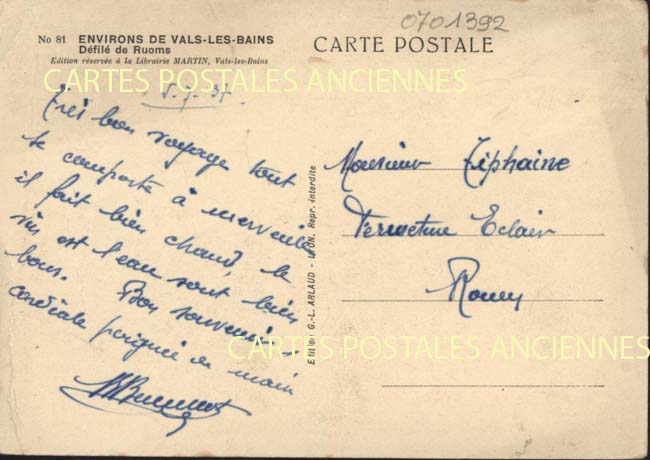 0701392
No 81 ENVIRONS DE VALS-LES-BAINS
Défilé de Ruoms
Edition réservée à la Librairie MARTIN, Vals-les-Bains
CARTE POSTALE
CARTES POSTALES ANCIENNES
5-7-37
Très bon voyage tout
se comporte à merveille
il fait bien chaud, le
vin est l'eau sont bien
bons. Bon souvenir.
cordiale poignée de main
Edition G.-L. ARLAUD - LYON. Repr. interdite
Monsieur Tiphaine
Fermeture Eclair
Rouen
CARTES POSTALES ANCIENNES